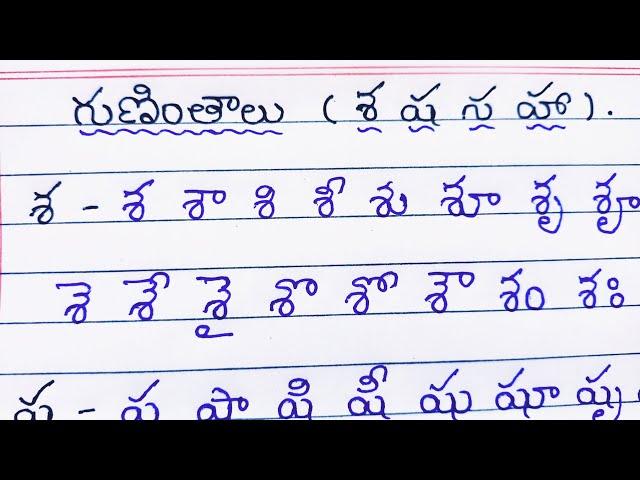 గుణింతాలు ( శ ష స హ ) .
శ - శ శా శి శీ శు శూ శృ శౄ
శె శే శై శొ శో శౌ శం శః
ష - ష షా షి షీ షు షూ షృ